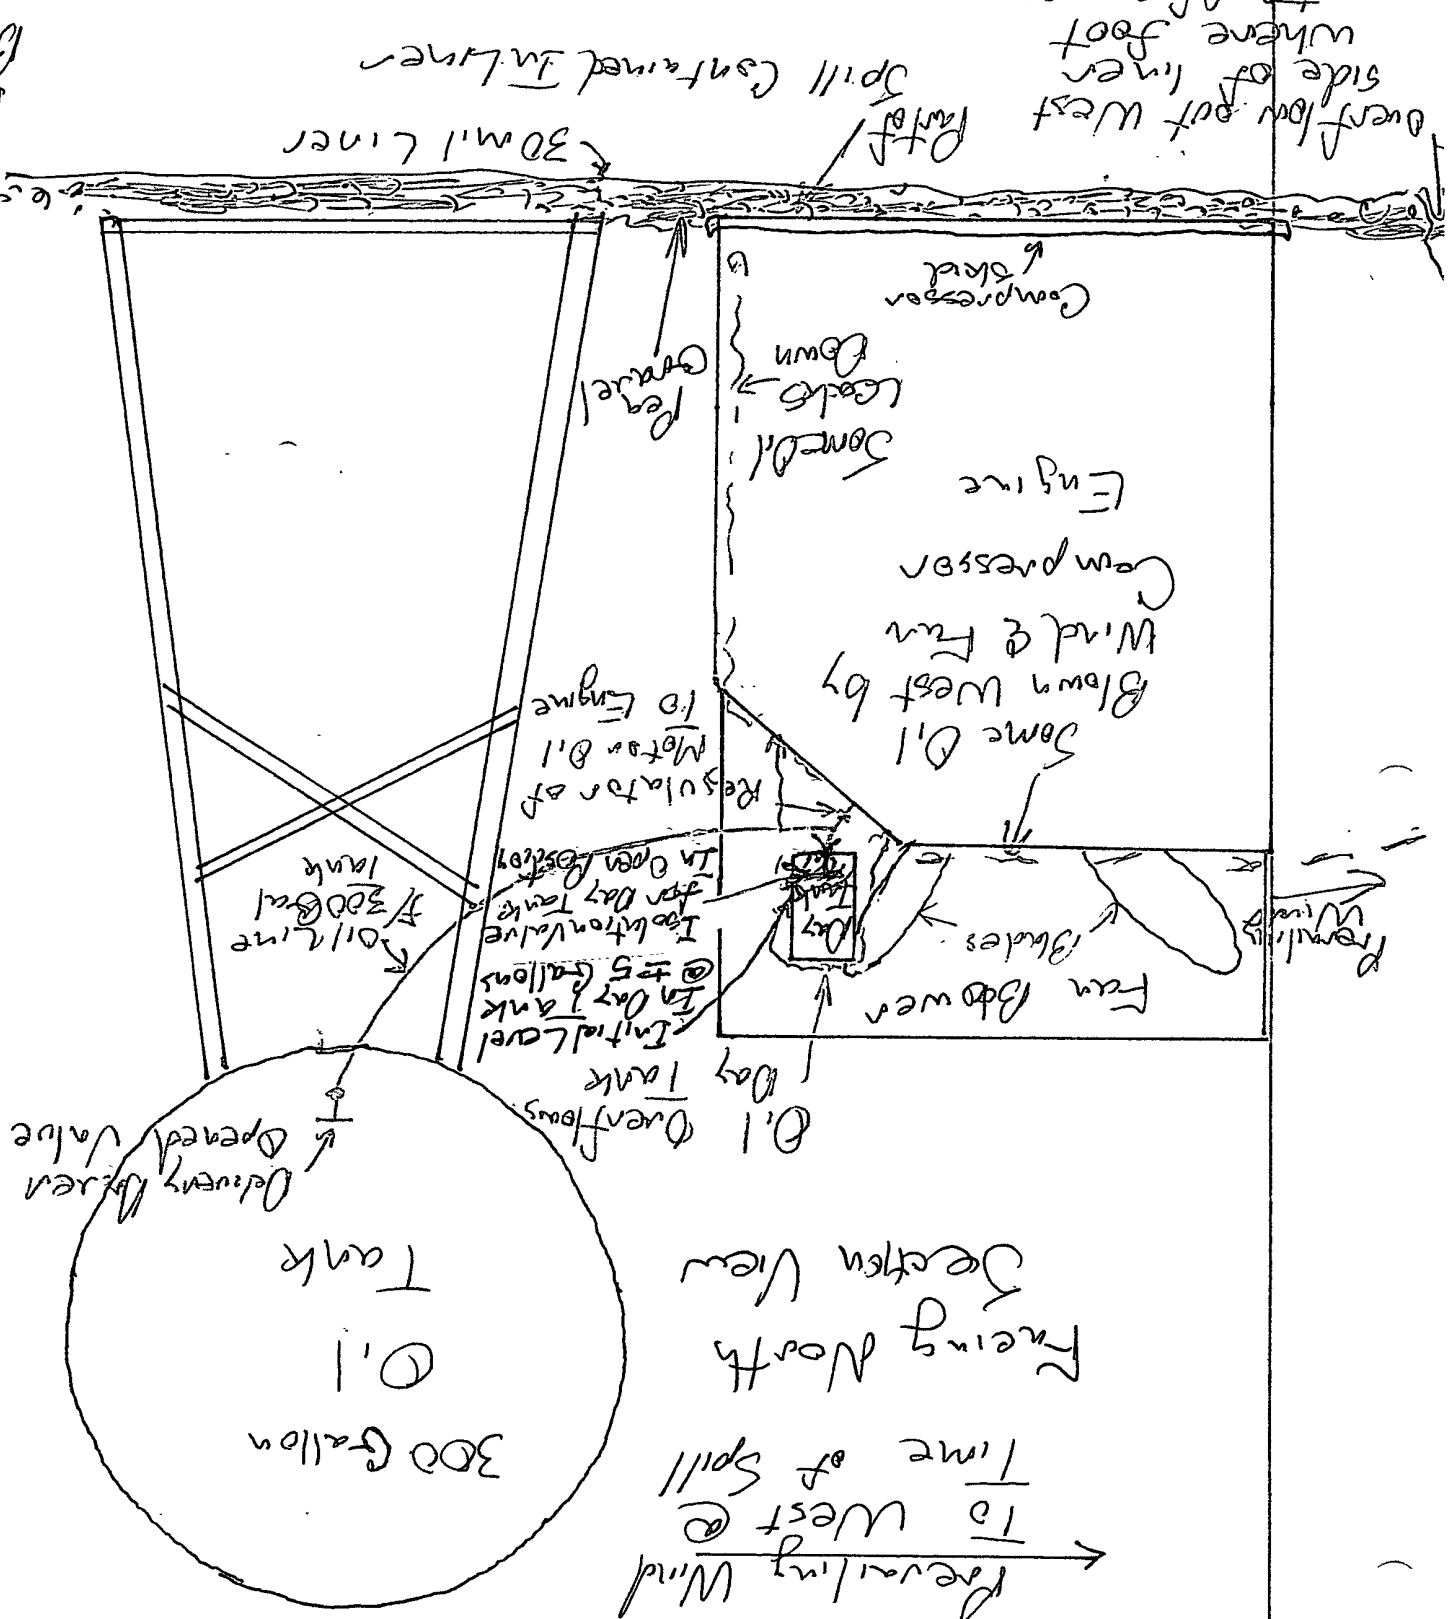 Prevailing Wind
To West @
Time of Spill
Facing North
Section View
300 Gallon
Oil
Tank
Delivery Driver
Opened Valve
Oil Overflows
Day Tank
Initial Level
In Day Tank
@ ± 5 Gallons
Isolution Valve
for Day Tank
In Open Position
Oil Line
f/ 300 Gal
Tank
Regulator of
Motor Oil
To Engine
Fan Blower
Blades
Day
Tank
Prevailing
Wind
Some Oil
Blown West by
Wind & Fan
Compressor
Engine
Some Oil
Leaks
Down
Pea
Gravel
Compressor
Skid
30 mil Liner
Part of
Spill Contained In Liner
Overflow out West
side of liner
where foot